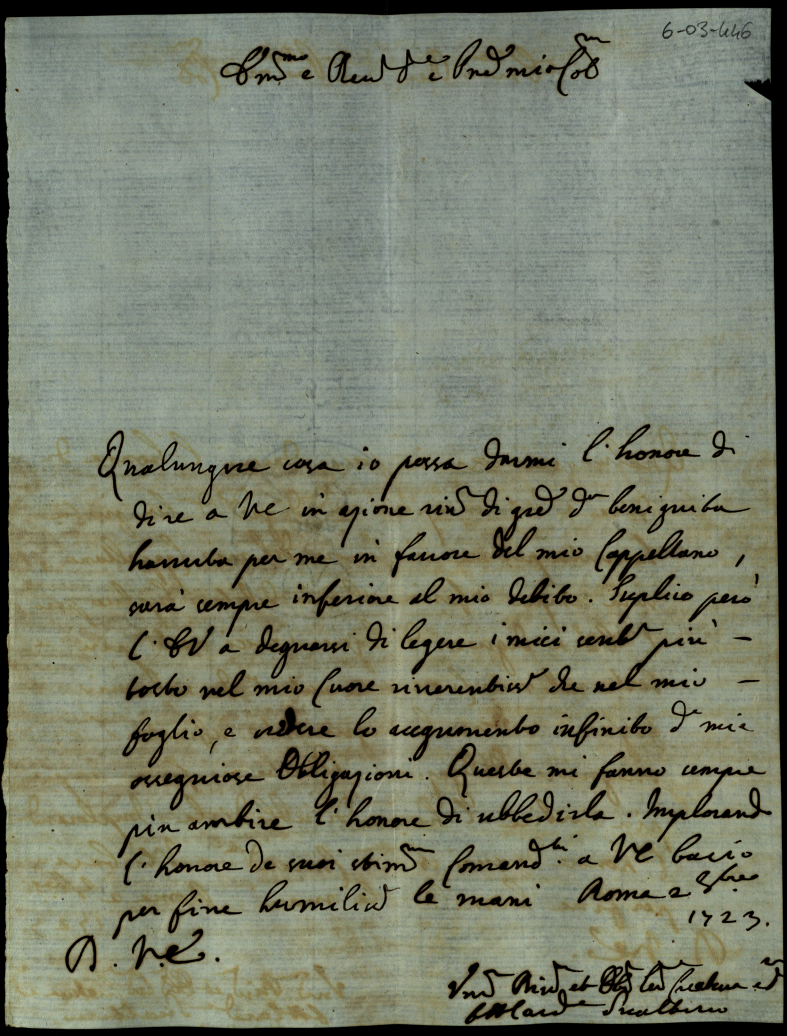 6-03-446
Em.mo e Reu.do S.e e Pne mio Col.mo
Qualunque cosa io possa darmi l'honore di
dire a VE in azione rin.to di gred d.a benignita
hauuta per me in fauore del mio Cappellano,
sarà sempre inferiore al mio debito. Suplico però
l'EV a degnarsi di legere i miei sent.ti più -
tosto nel mio Cuore riuerentis.o che nel mio -
foglio, e uedere lo acegumento infinito d.e mie
ossequiose Obligazioni. Queste mi fanno sempre
più ambire l'honore di ubbedirla. Implorando
l'honore de suoi stim.mi Comand.ti a VE bacio
per fine humilis.e le mani Roma 2 Xbre
1723.
D. V.E.